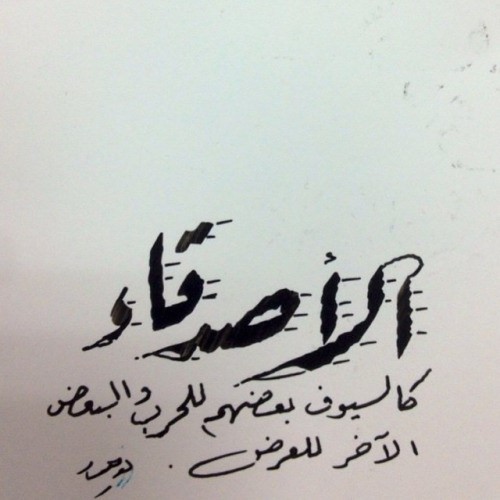 الأصدقاء
كالسيوف بعضهم للحرب والبعض
الآخر للعرض .